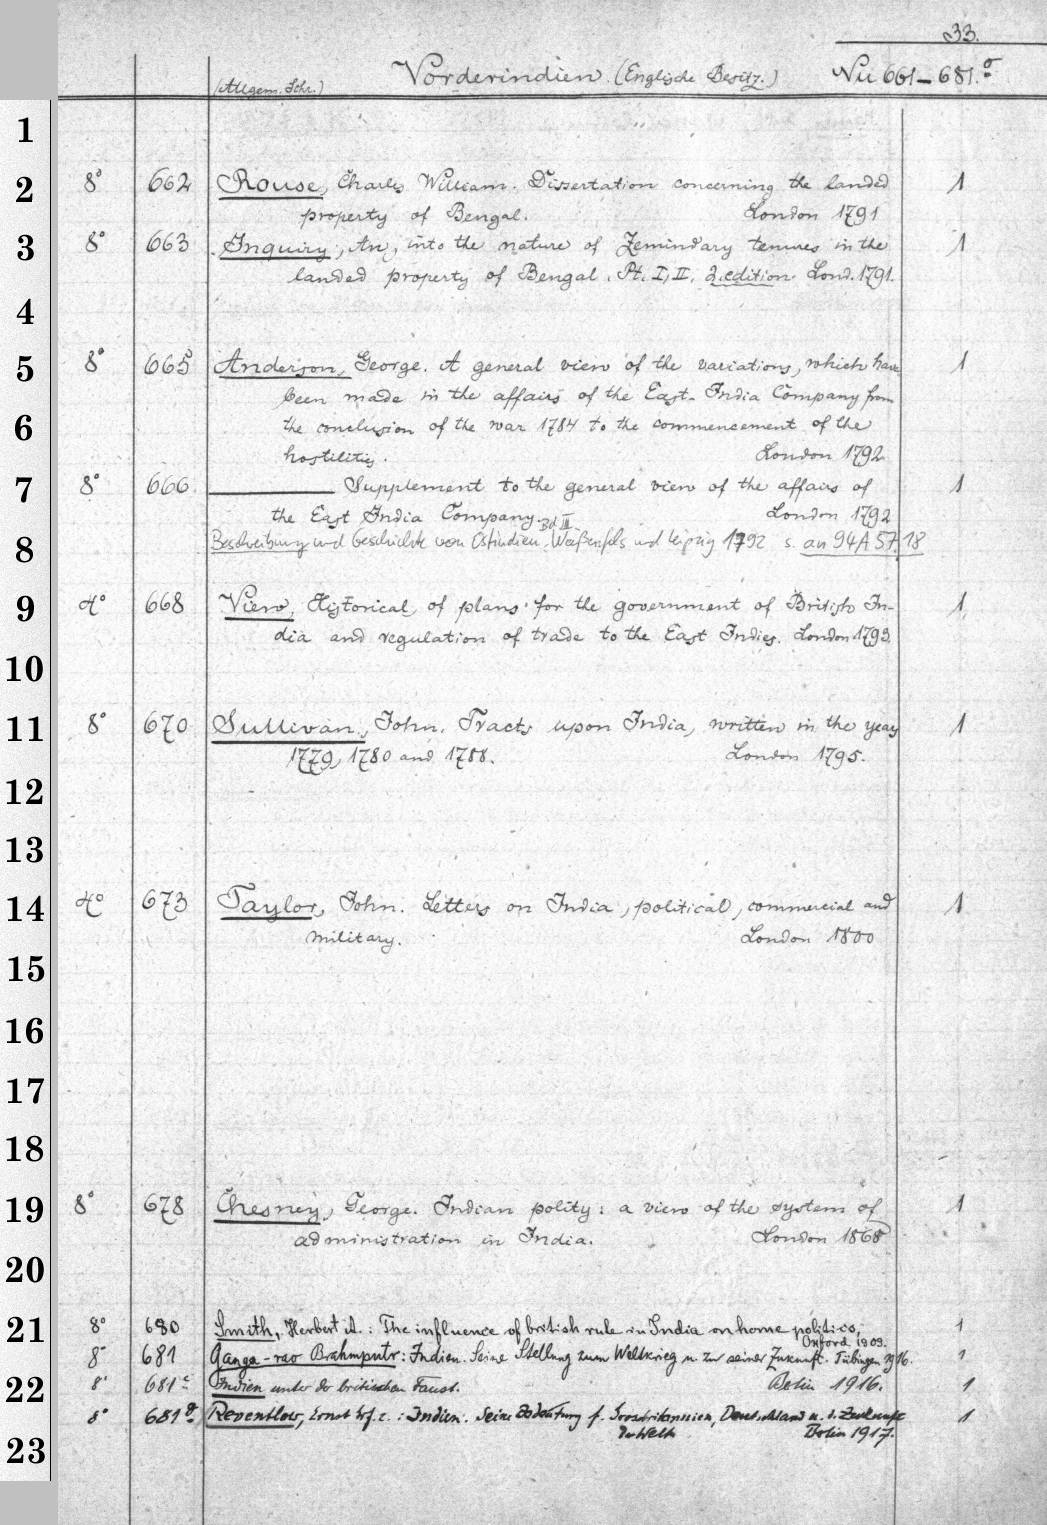 33.
(Allgem. Schr.) Vorderindien (Englische Besitz.) Nu 661-681.
1
2 8° 662 Rouse, Charles William. Dissertation concerning the landed 1
property of Bengal. London 1791
3 8° 663 Inquiry, An, into the nature of Zemindary tenures in the 1
landed property of Bengal. Pt. I, II. 2. edition. Lond. 1791.
4
5 8° 665 Anderson, George. A general view of the variations, which have 1
been made in the affairs of the East-India Company from
6 the conclusion of the war 1784 to the commencement of the
hostilities. London 1792
7 8° 666 Supplement to the general view of the affairs of 1
the East India Company. London 1792
8 Beschreibung und Geschichte von Ostindien. Bd III Weißenfels und Leipzig 1792 s. an 94 A 57,18
9 4° 668 View, Historical, of plans for the government of British In- 1
dia and regulation of trade to the East Indies. London 1793.
10
11 8° 670 Sullivan, John. Tracts upon India, written in the years 1
1779, 1780 and 1788. London 1795.
12
13
14 4° 673 Taylor, John. Letters on India, political, commercial and 1
military. London 1800
15
16
17
18
19 8° 678 Chesney, George. Indian polity: a view of the system of 1
administration in India. London 1868
20
21 8° 680 Smith, Herbert A.: The influence of british rule in India on home politics, 1
Oxford 1903.
8° 681 Ganga-rao Brahmputr: Indien. Seine Stellung zum Weltkrieg u. zu seiner Zukunft. Tübingen 1916. 1
22 8° 681c Indien unter der britischen Faust. Berlin 1916. 1
8° 681g Reventlow, Ernst Grf. z.: Indien. Seine Bedeutung f. Grossbritannien, Deutschland u. d. Zukunft 1
der Welt Berlin 1917.
23